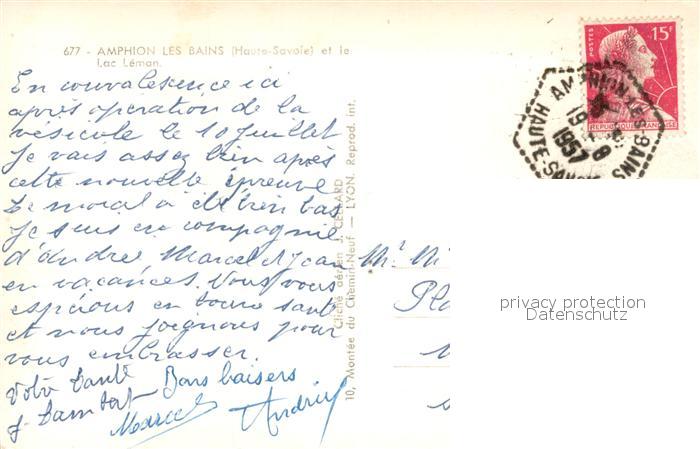 677 - AMPHION LES BAINS (Haute-Savoie) et le
Lac Léman.
En convalescence ici
après opération de la
vésicule le 10 juillet
Je vais assez bien après
cette nouvelle épreuve
Le moral a été bien bas
Je suis en compagnie
d'André Marcel et Jean
en vacances. Vous vous
espérons en bonne santé
et nous joignons pour
vous embrasser.
Votre tante Bons baisers
Marcel
10, Montée du Chemin-Neuf — LYON. Reprod. int.
POSTES
15F
REPUBLIQUE FRANÇAISE
AMPHION-LES-BAINS
HAUTE-SAVOIE
19
1957
Pla
privacy protection
Datenschutz